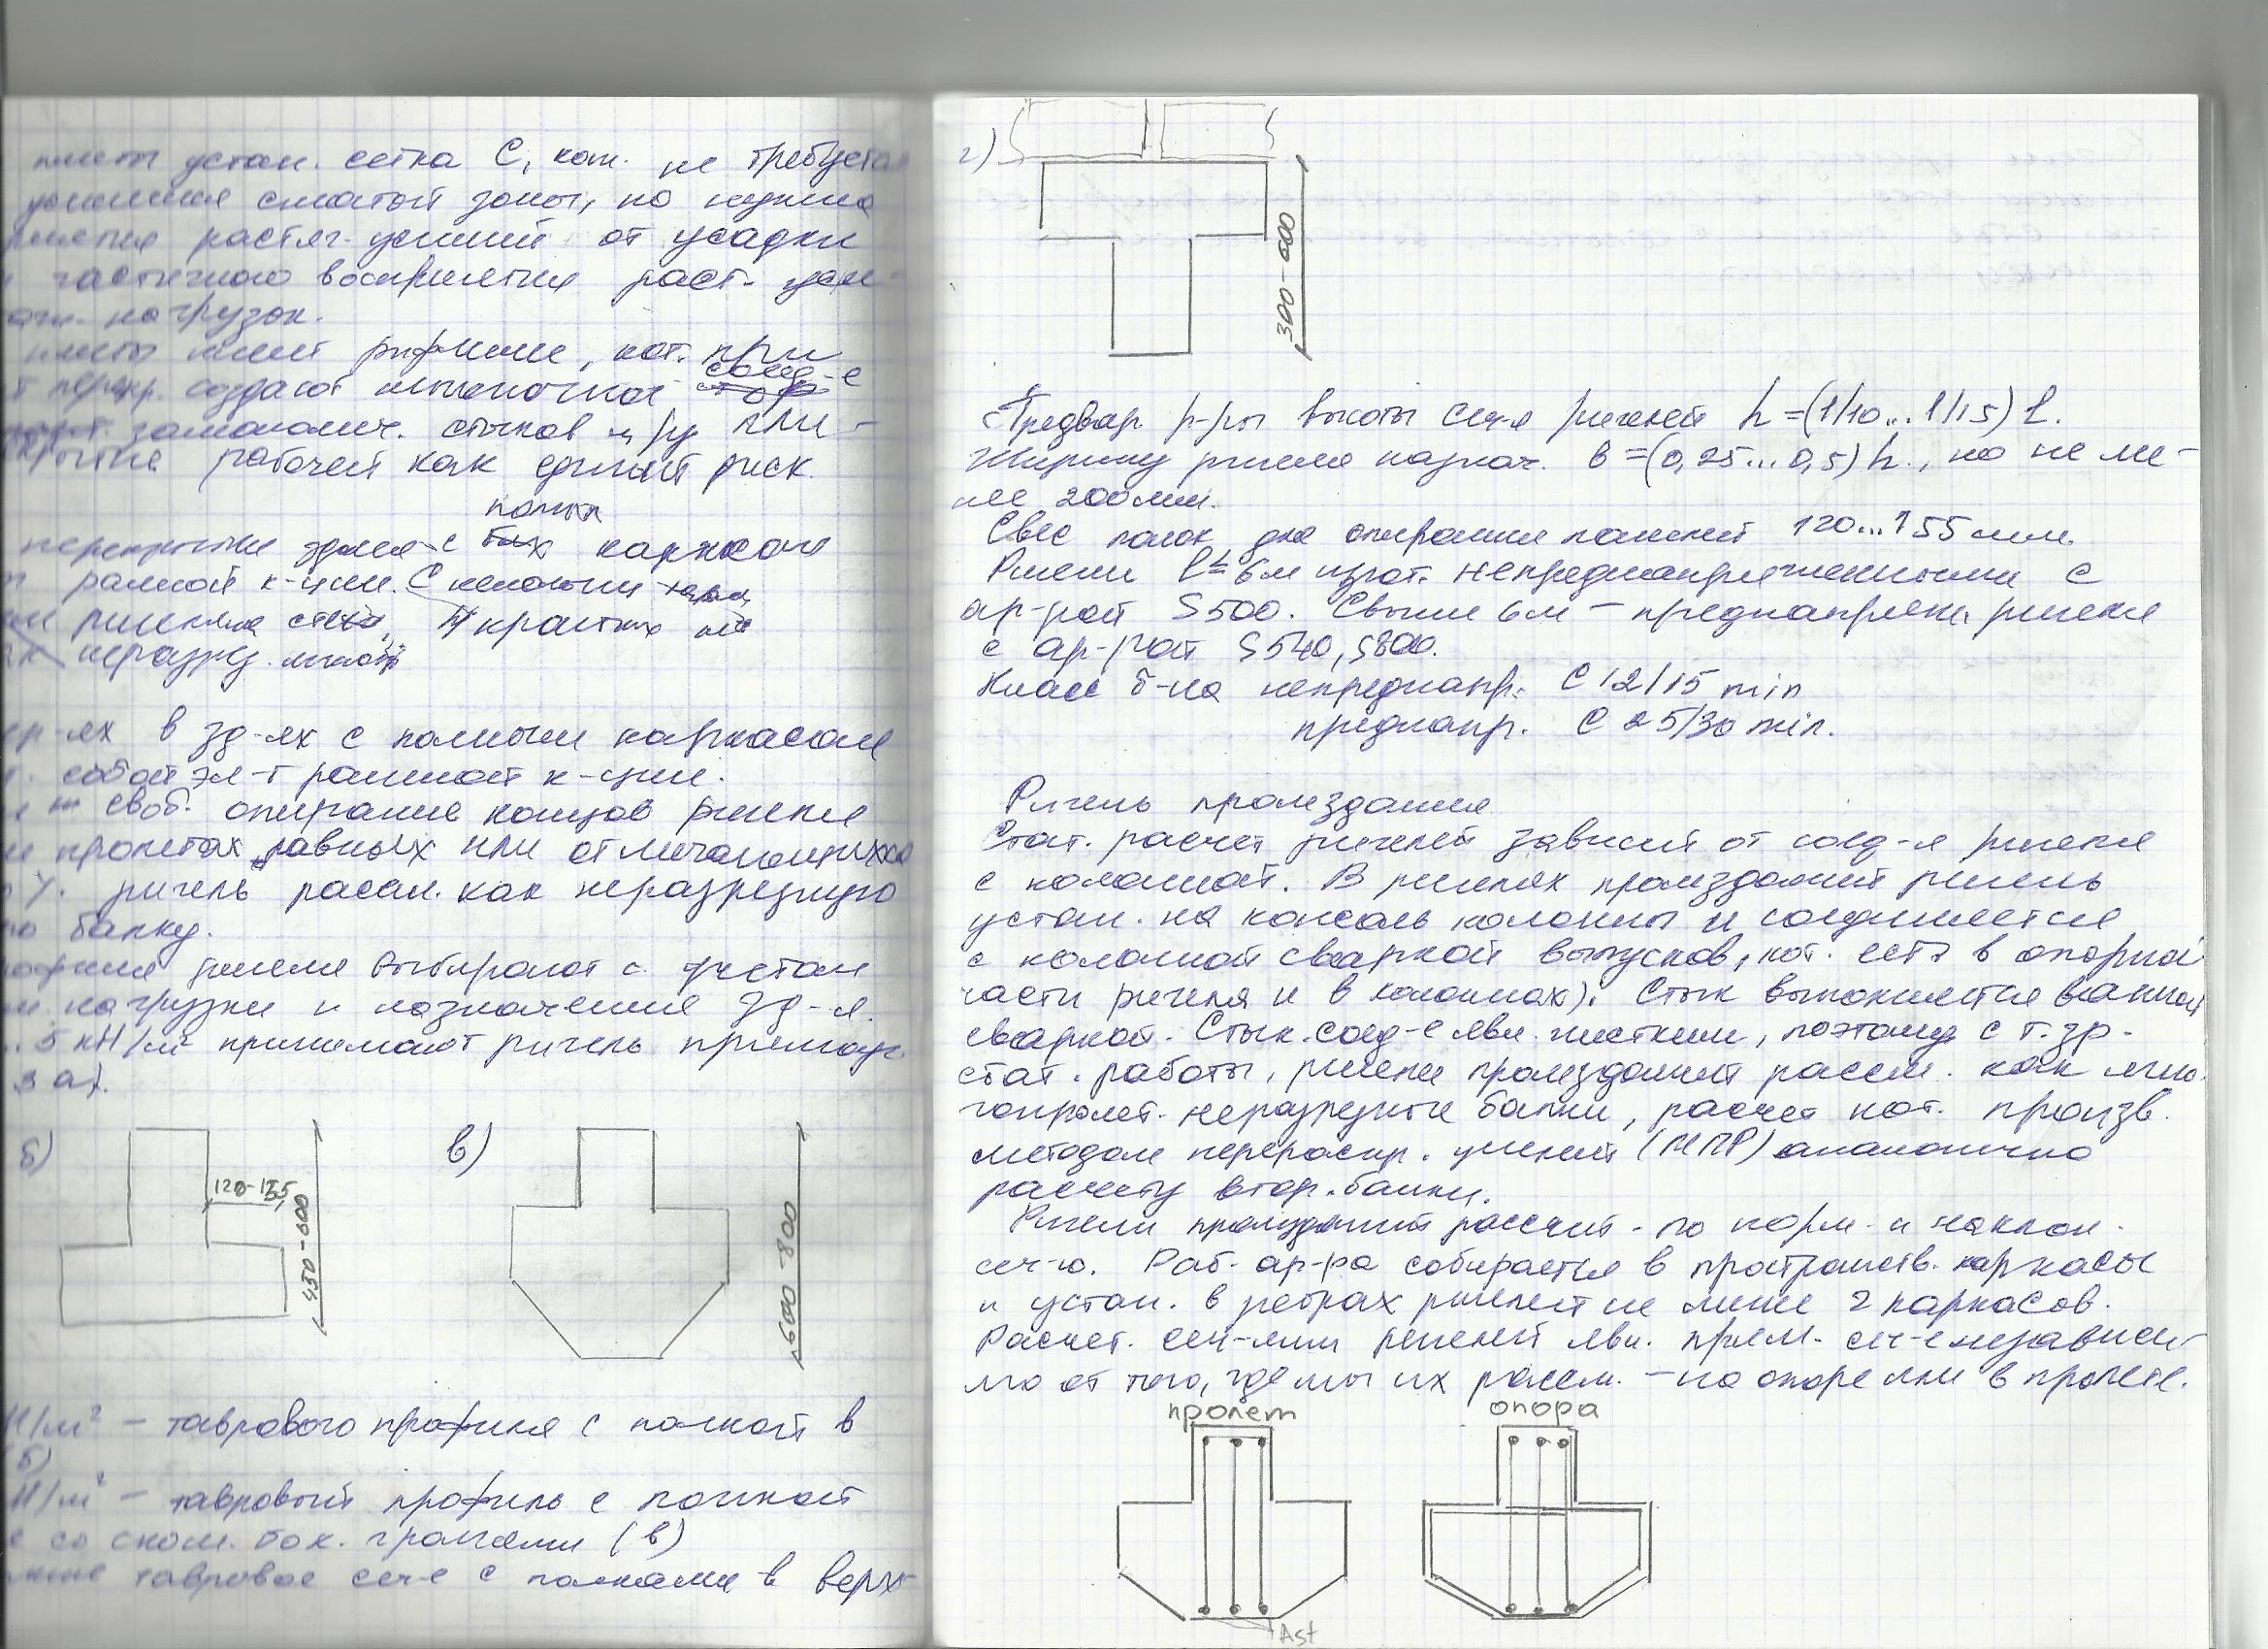 устан. сетка С, кот. не требуется
сжатой зоны, но нужна
растяг. усилий от усадки
частичного восприятия раст. уси-
нагрузок.
рифление, кот. при
перекр. создают шпоночное соед-е
замонолич. стыков м/у пли-
работает как единый диск.
полным
перекрытие здания с каркасом
рамной к-ции. С неполным
ригеля
неразрез.
ях в зд-ях с полным каркасом
собой эл-т рамной к-ции.
своб. опирание концов ригеля
пролетах, равных или отличающихся
%. ригель рассм. как неразрезную
балку.
ригеля выбирают с учетом
нагрузки и назначения зд-я.
5 кН/м² принимают ригель прямоуг.
а).
б)
в)
120-155
450-600
600-800
Н/м² – таврового профиля с полкой в
б)
Н/м² – тавровый профиль с полкой
со скош. бок. гранями (в)
тавровое сеч-е с полками в верх-
г)
300-600
Предвар. р-ры высоты сеч-я ригелей h=(1/10...1/15) l.
Ширину ригеля назнач. в=(0,25...0,5) h., но не ме-
нее 200мм.
Свес полок для опирания панелей 120...155мм.
Ригели l≤6м изгот. непреднапряженными с
ар-рой S500. Свыше 6м – преднапряжен. ригеля
с ар-рой S540, S800.
Класс б-на непреднапр. С 12/15 min
преднапр. С 25/30 min.
Ригель промздания
Стат. расчет ригелей зависит от соед-я ригеля
с колонной. В ригелях промзданий ригель
устан. на консоль колонны и соединяется
с колонной сваркой выпусков, кот. есть в опорной
части ригеля и в колоннах). Стык выполняется ванной
сваркой. Стык. соед-е явл. жестким, поэтому с т. зр.
стат. работы, ригели промзданий рассм. как мно-
гопролет. неразрезные балки, расчет кот. произв.
методом перераспр. усилий (МПР) аналогично
расчету втор. балки.
Ригели промзданий рассчит. по норм. и наклон.
сеч-ю. Раб. ар-ра собирается в пространств. каркасы
и устан. в ребрах ригелей не менее 2 каркасов.
Расчет. сеч-ями ригелей явл. прям. сеч-е независи-
мо от того, где мы их рассм. – на опоре или в пролете.
пролет
опора
Ast